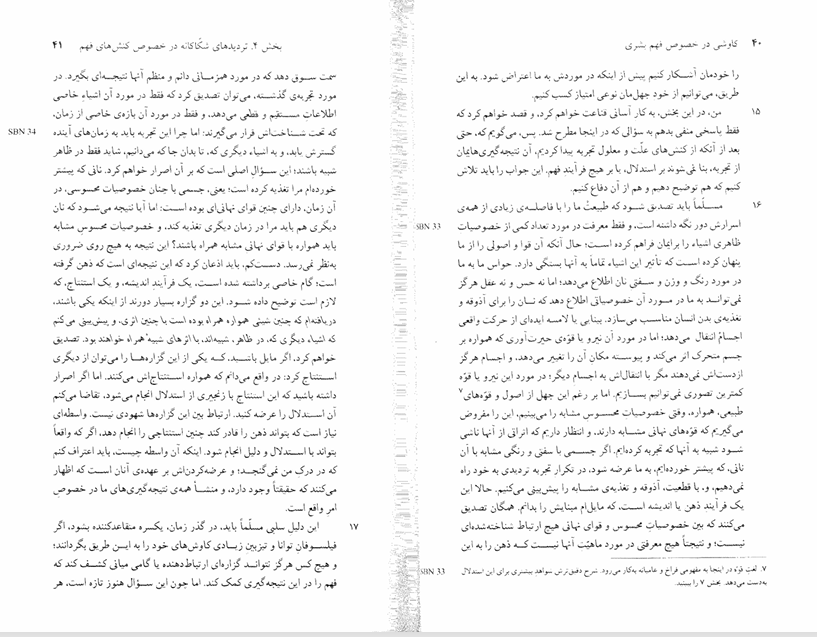 ۴۰ کاوشی در خصوص فهم بشری
را خودمان آشکار کنیم پیش از اینکه در موردش به ما اعتراض شود. به این
طریق، می‌توانیم از خود جهل‌مان نوعی امتیاز کسب کنیم.
۱۵ من، در این بخش، به کار آسانی قناعت خواهم کرد، و قصد خواهم کرد که
فقط پاسخی منفی بدهم به سؤالی که در اینجا مطرح شد. پس، می‌گویم که، حتی
بعد از آنکه از کنش‌های علّت و معلول تجربه پیدا کردیم، آن نتیجه‌گیری‌هایمان
از تجربه، بنا نمی‌شوند بر استدلال، یا بر هیچ فرآیندِ فهم. این جواب را باید تلاش
کنیم که هم توضیح دهیم و هم از آن دفاع کنیم.
۱۶ مسلّماً باید تصدیق شود که طبیعتْ ما را با فاصله‌ی زیادی از همه‌ی
SBN 33 اسرارش دور نگه داشته است، و فقط معرفت در مورد تعداد کمی از خصوصیات
ظاهری اشیاء را برایمان فراهم کرده است؛ حال آنکه آن قوا و اصولی را از ما
پنهان کرده است که تأثیر این اشیاء تماماً به آنها بستگی دارد. حواس ما به ما
در مورد رنگ و وزن و سفتی نان اطلاع می‌دهد؛ اما نه حس و نه عقل هرگز
نمی‌تواند به ما در مورد آن خصوصیاتی اطلاع دهد که نان را برای آذوقه و
تغذیه‌ی بدن انسان مناسب می‌سازد. بینایی یا لامسه ایده‌ای از حرکت واقعی
اجسامْ انتقال می‌دهد؛ اما در مورد آن نیرو یا قوّه‌ی حیرت‌آوری که همواره بر
جسم متحرک اثر می‌کند و پیوسته مکان آن را تغییر می‌دهد، و اجسام هرگز
ازدست‌اش نمی‌دهند مگر با انتقال‌اش به اجسام دیگر؛ در مورد این نیرو یا قوّه
کمترین تصوری نمی‌توانیم بسازیم. اما بر رغم این جهل از اصول و قوّه‌های۷
طبیعی، همواره، وقتی خصوصیات محسوس مشابه را می‌بینیم، این را مفروض
می‌گیریم که قوّه‌های نهانی مشابه دارند، و انتظار داریم که اثراتی از آنها ناشی
شود شبیه به آنها که تجربه کرده‌ایم. اگر جسمی با سفتی و رنگی مشابه با آن
نانی، که پیشتر خورده‌ایم، به ما عرضه شود، در تکرار تجربه تردیدی به خود راه
نمی‌دهیم، و، با قطعیت، آذوقه و تغذیه‌ی مشابه را پیش‌بینی می‌کنیم. حالا این
یک فرآیند ذهن یا اندیشه است، که مایل‌ام مبنایش را بدانم. همگان تصدیق
می‌کنند که بین خصوصیاتِ محسوس و قوای نهانی هیچ ارتباط شناخته‌شده‌ای
نیست؛ و نتیجتاً هیچ معرفتی در مورد ماهیّت آنها نیست که ذهن را به این
SBN 33 ۷. لغتِ قوّه در اینجا به مفهومی فراخ و عامیانه به‌کار می‌رود. شرح دقیق‌ترش شواهد بیشتری برای این استدلال
به‌دست می‌دهد. بخش ۷ را ببینند.
بخش ۴. تردیدهای شکّاکانه در خصوص کنش‌های فهم ۴۱
سمت سوق دهد که در مورد همزمانی دائم و منظم آنها نتیجه‌ای بگیرد. در
مورد تجربه‌ی گذشته، می‌توان تصدیق کرد که فقط در مورد آن اشیاءِ خاصی
اطلاعاتِ مستقیم و قطعی می‌دهد، و فقط در مورد آن بازه‌ی خاصی از زمان،
SBN 34 که تحت شناخت‌اش قرار می‌گیرند: اما چرا این تجربه باید به زمان‌های آینده
گسترش یابد، و به اشیاء دیگری که، تا بدان جا که می‌دانیم، شاید فقط در ظاهر
شبیه باشند؛ این سؤال اصلی است که بر آن اصرار خواهم کرد. نانی که پیشتر
خورده‌ام مرا تغذیه کرده است؛ یعنی، جسمی با چنان خصوصیات محسوسی، در
آن زمان، دارای چنین قوای نهانی‌ای بوده است: اما آیا نتیجه می‌شود که نان
دیگری هم باید مرا در زمان دیگری تغذیه کند، و خصوصیات محسوسِ مشابه
باید همواره با قوای نهانی مشابه همراه باشند؟ این نتیجه به هیچ روی ضروری
به‌نظر نمی‌رسد. دست‌کم، باید اذعان کرد که این نتیجه‌ای است که ذهن گرفته
است؛ گام خاصی برداشته شده است، یک فرآیند اندیشه، و یک استنتاج، که
لازم است توضیح داده شود. این دو گزاره بسیار دورند از اینکه یکی باشند،
دریافته‌ام که چنین شیئی همواره همراه بوده است با چنین اثری، و پیش‌بینی می‌کنم
که اشیاء دیگری که، در ظاهر، شبیه‌اند، با اثرهای شبیه همراه خواهند بود. تصدیق
خواهم کرد، اگر مایل باشید، که یکی از این گزاره‌ها را می‌توان از دیگری
استنتاج کرد: در واقع می‌دانم که همواره استنتاج‌اش می‌کنند. اما اگر اصرار
داشته باشید که این استنتاج با زنجیری از استدلال انجام می‌شود، تقاضا می‌کنم
آن استدلال را عرضه کنید. ارتباط بین این گزاره‌ها شهودی نیست. واسطه‌ای
نیاز است که بتواند ذهن را قادر کند چنین استنتاجی را انجام دهد، اگر که واقعاً
بتواند با استدلال و دلیل انجام شود. اینکه آن واسطه چیست، باید اعتراف کنم
که در درکِ من نمی‌گنجد؛ و عرضه‌کردن‌اش بر عهده‌ی آنان است که اظهار
می‌کنند که حقیقتاً وجود دارد، و منشأ همه‌ی نتیجه‌گیری‌های ما در خصوص
امر واقع است.
۱۷ این دلیل سلبی مسلّماً باید، در گذر زمان، یکسره متقاعدکننده بشود، اگر
فیلسوفانِ توانا و تیزبین زیادی کاوش‌های خود را به این طریق بگردانند؛
و هیچ کس هرگز نتواند گزاره‌ای ارتباط‌دهنده یا گامی میانی کشف کند که
فهم را در این نتیجه‌گیری کمک کند. اما چون این سؤال هنوز تازه است، هر